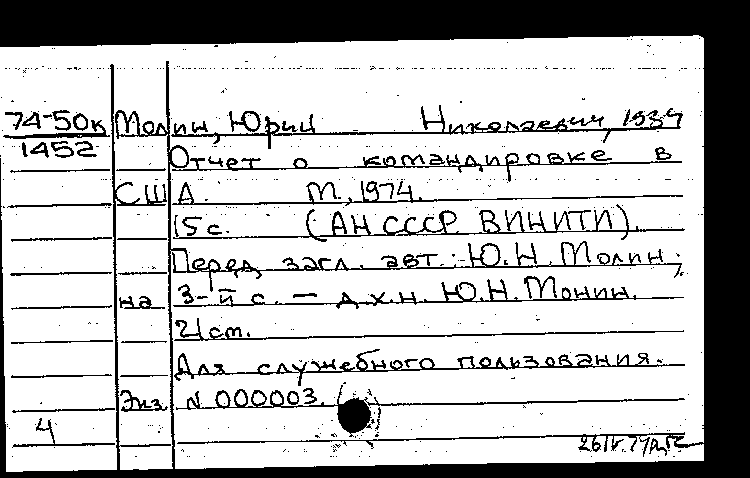 74-50к Молин, Юрий Николаевич, 1934
1452 Отчет о командировке в
США. М., 1974.
15с. (АН СССР ВИНИТИ).
Перед загл. авт.: Ю.Н. Молин;
на 3-й с. – д.х.н. Ю.Н. Монин.
21 см.
Для служебного пользования.
Экз. N 000003.
4
26 IV.74